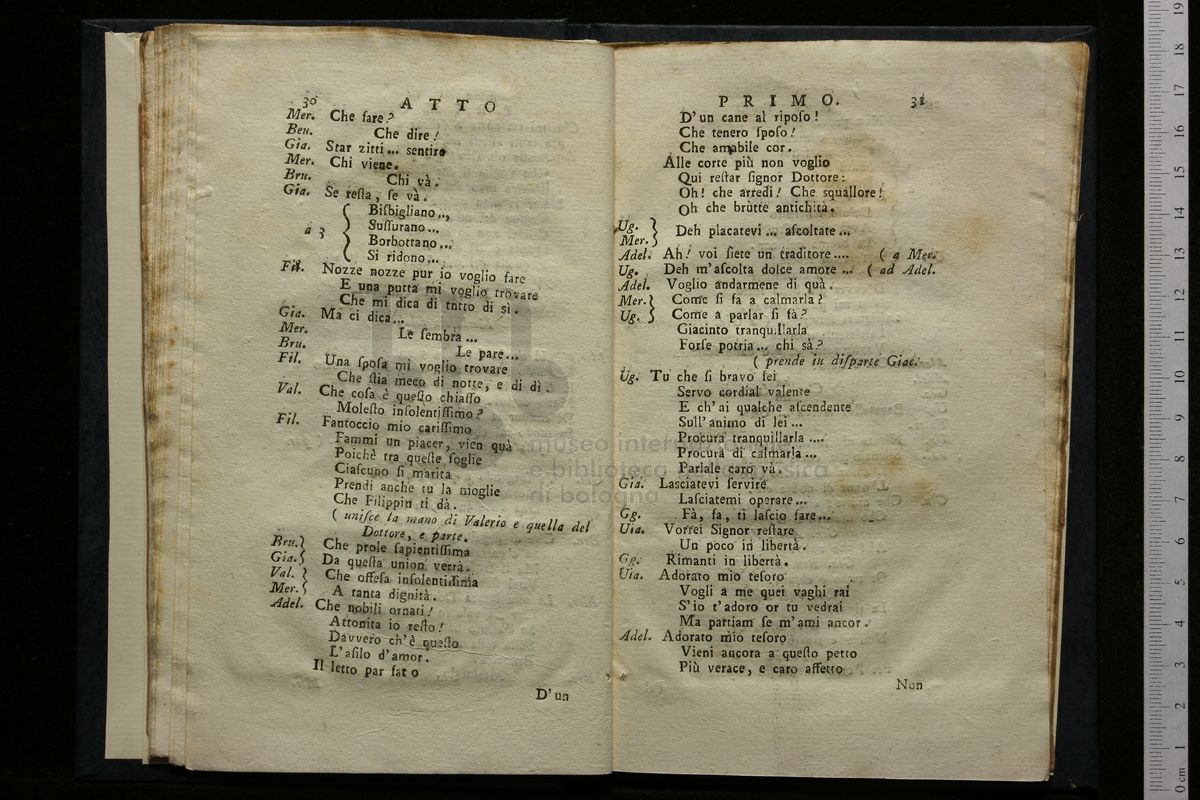 30 ATTO
Mer. Che fare?
Beu. Che dire!
Gia. Star zitti... sentire
Mer. Chi viene.
Bru. Chi và.
Gia. Se resta, se và.
à 3 { Bisbigliano..,
Sussurano...
Borbottano...
Si ridono...
Fil. Nozze nozze pur io voglio fare
E una putta mi voglio trovare
Che mi dica di tntto di sì.
Gia. Ma ci dica...
Mer. Le sembra...
Bru. Le pare...
Fil. Una sposa mi voglio trovare
Che stia meco di notte, e di dì.
Val. Che cosa è questo chiasso
Molesto insolentissimo?
Fil. Fantoccio mio carissimo
Fammi un piacer, vien quà
Poichè tra queste soglie
Ciascuno si marita
Prendi anche tu la moglie
Che Filippin ti dà.
( unisce la mano di Valerio e quella del
Dottore, e parte.
Bru. } Che prole sapientissima
Gia. } Da questa union verrà.
Val. } Che offesa insolentissima
Mer. } A tanta dignità.
Adel. Che nobili ornati!
Attonita io resto!
Davvero ch'è questo
L'asilo d'amor.
Il letto par fato
D'un
PRIMO. 31
D'un cane al riposo!
Che tenero sposo!
Che amabile cor.
Alle corte più non voglio
Qui restar signor Dottore:
Oh! che arredi! Che squallore!
Oh che brutte antichità.
Ug. }
Mer. } Deh placatevi... ascoltate...
Adel. Ah! voi siete un traditore.... ( a Mer.
Ug. Deh m'ascolta dolce amore... ( ad Adel.
Adel. Voglio andarmene di quà.
Mer. } Come si fa a calmarla?
Ug. } Come a parlar si fà?
Giacinto tranquillarla
Forse potria... chi sà?
( prende iu disparte Giac.
Ug. Tu che sì bravo sei
Servo cordial valente
E ch'ai qualche ascendente
Sull'animo di lei...
Procura tranquillarla ....
Procura di calmarla...
Parlale caro và.
Gia. Lasciatevi servire
Lasciatemi operare...
Gg. Fà, fa, ti lascio fare...
Uia. Vorrei Signor restare
Un poco in libertà.
Gg. Rimanti in libertà.
Uia. Adorato mio tesoro
Vogli a me quei vaghi rai
S'io t'adoro or tu vedrai
Ma partiam se m'ami ancor.
Adel. Adorato mio tesoro
Vieni ancora a questo petto
Più verace, e caro affetto
Non
museo internazionale
e biblioteca della musica
di bologna
0 cm 1 2 3 4 5 6 7 8 9 10 11 12 13 14 15 16 17 18 19